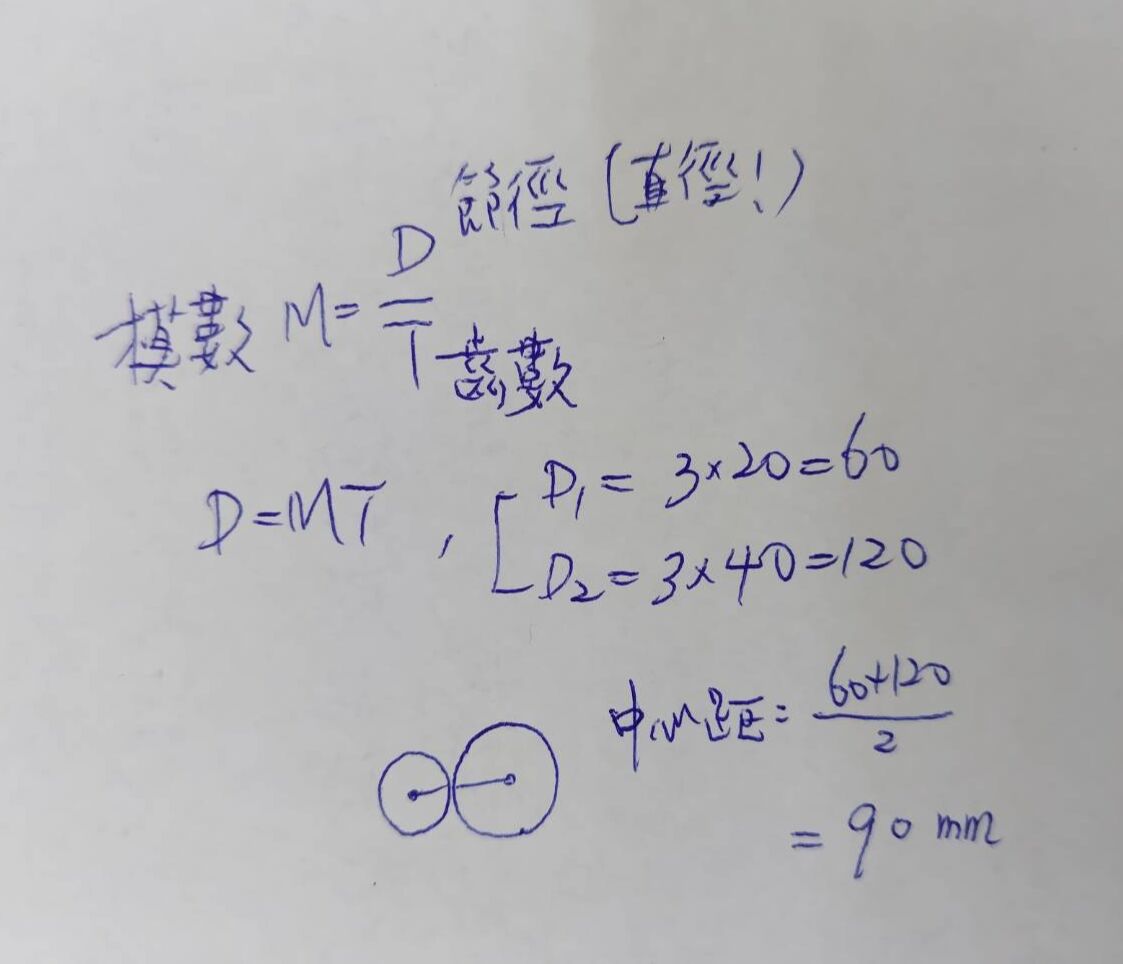 節徑(直徑!)
模數 M = D/T 齒數
D=MT , D₁ = 3×20=60
D₂ = 3×40=120
中心距 = (60+120)/2
= 90 mm